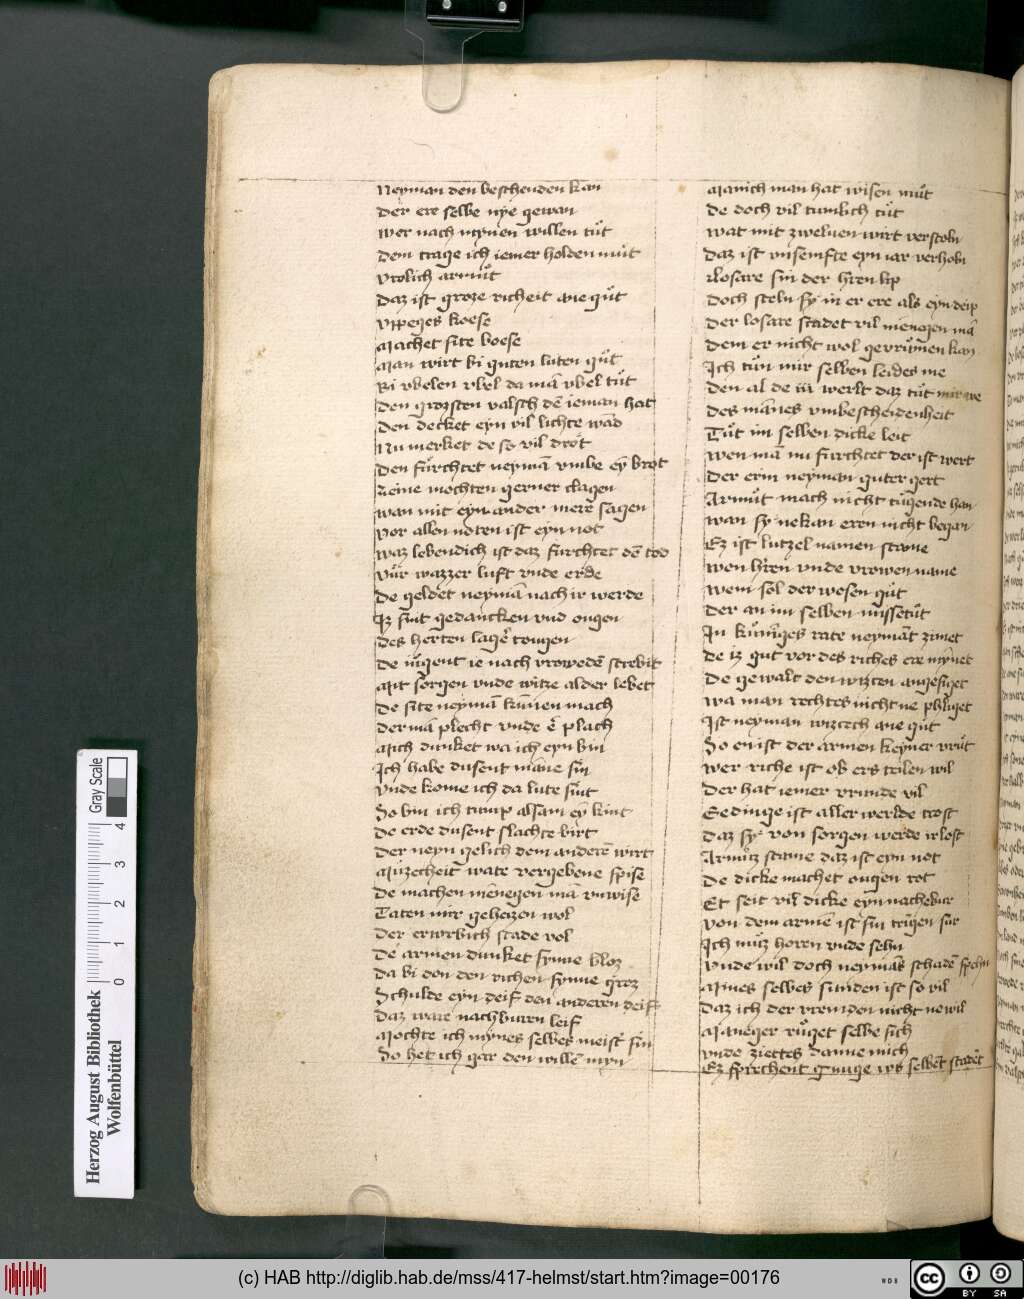 Neyman den beschenden kan
Der ere selbe nye gewan
Wer nach mynen willen tuͦt
Dem trage ich iemer holden muͦt
Vrolich armuͦt
Daz ist groze richeit ane guͦt
Vppeges koese
Machet site boese
Man wirt bi guten luten guͦt
Bi vbelen vbel da mā vbel tuͦt
Den grozsten valsch dē ieman hat
Den decket eyn vil lichte wād
Nu merket de so vil drot
Den fuͤrchtet neymā vmbe eȳ brot
mochten gerner clagen
Wan mit eyn ander mere sagen
Vor allen noten ist eyn not
Waz lebendich ist daz furchtet dē tod
Vuͤr wazzer luft vnde erde
De geldet neymā nach ir werde
Iz sint gedancken vnd ougen
Des herten lager tougen
De iugent ie nach vrowedē strebit
Mit sorgen vnde witze alder lebet
De site neymā kunnen mach
Der mā plecht vnde e plach
Mich dunket wa ich eyn bin
Ich habe dusent māne sin
Vnde kome ich da lute sint
So bin ich tump alsam eȳ kint
De erde dusent slachte birt
Der neyn gelich dem anderē wirt
wate vergebene spise
De machen mēnegen mā vnwise
Taten mir geheizen wol
Der erwrbich stade vol
De armen dunket synne bloz
Da bi den den richen synne groz
Schulde eyn deif den anderen deif
Daz ware nachburen leif
Mochte ich mynes selbes meist sin
So het ich gar den willē myn
Manich man hat wisen muͦt
De doch vil tumlich tuͦt
Wat mit zweluen wirt verstoln
Daz ist vnsemfte eyn iar verholn
losare sin der hren lip
Doch steln sy in er ere als eyn deip
Der losare stadet vil menegen mā
Dem er nicht wol gevruͦmen kan
Ich tuͦn mir selben leides me
Den al de werlt daz tuͦt mir we
Des mānes vmbescheidenheit
Tuͦt im selben dicke leit
Wen mā nu furchtet der ist wert
Der erin neyman guter gert
Armuͦt mach nicht tugende han
Wan sy nekan eren nicht began
Ez ist lutzel namen scone
Wen hren vnde vrowen name
Wem sol der wesen guͦt
Der an im selben missetuͦt
In kuͦniges rate neymāt zimet
De iz gut vor des riches ere nymet
De gewalt den wizten angesiget
Wa man rechtes nicht ne phliget
Ist neyman wizcech ane guͦt
So en ist der armen keyner vruͦt
Wer riche ist ob ers teilen wil
Der hat iemer vrunde vil
Gedinge ist aller werlde trost
Daz sy von sorgen werde irlost
Armuͦtz scame daz ist eyn not
De dicke machet ougen rot
Et seit vil dicke eyn nachebur
Von dem armē ist sin trugen sur
Ich muͦz horen vnde sehn
Vnde wil doch neymās schadē spehn
Mines selbes sunden ist so vil
Daz ich der vremden nicht ne wil
Maneger ruͦget selbe sich
Vnde danne mich
Ez sprechent gnuge wo selbet stadet
Herzog August Bibliothek
Wolfenbüttel
0 1 2 3 4
Gray Scale
(c) HAB http://diglib.hab.de/mss/417-helmst/start.htm?image=00176
WDB
cc BY SA